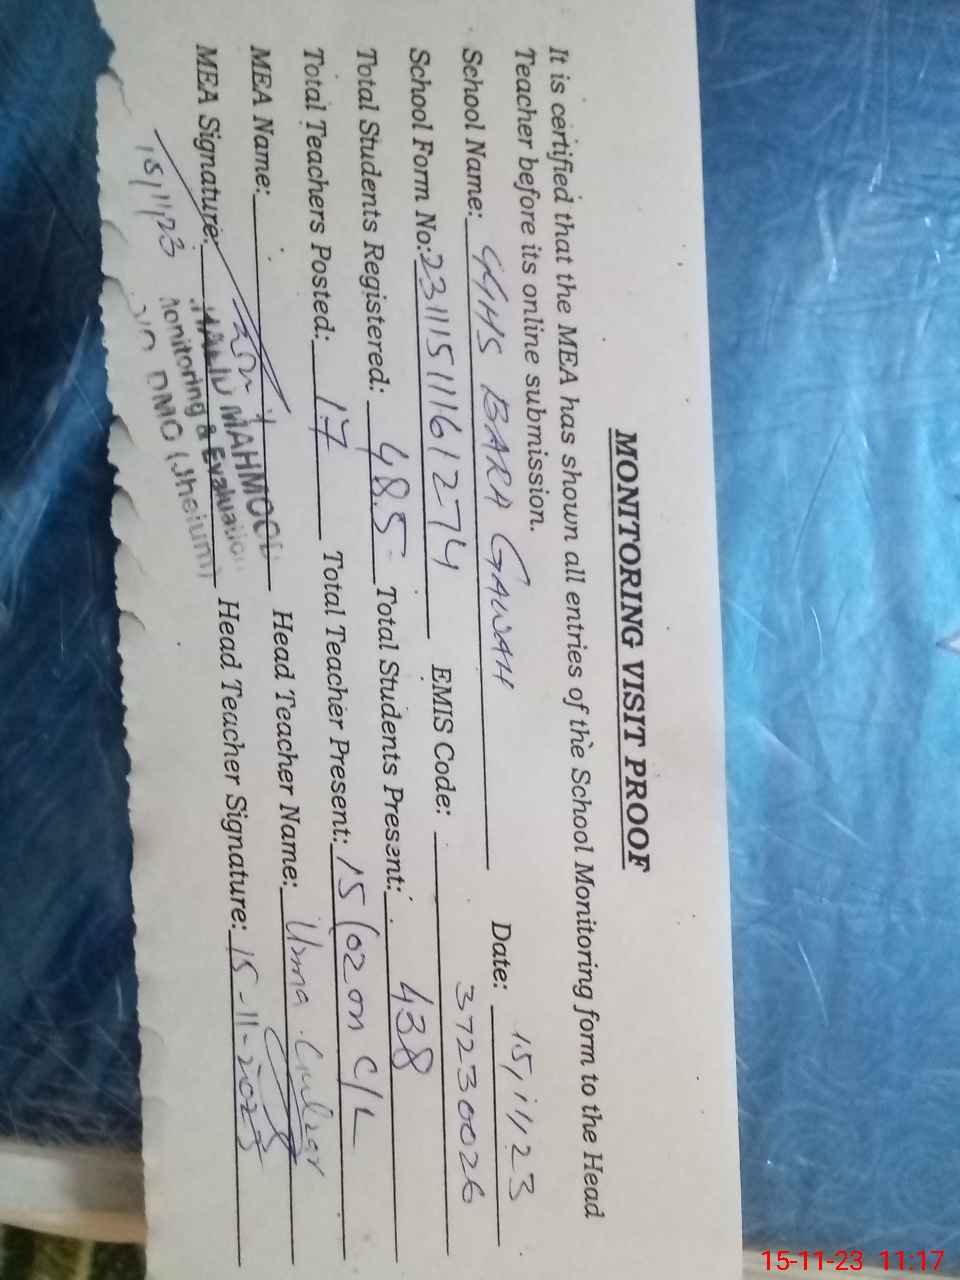 MONITORING VISIT PROOF
It is certified that the MEA has shown all entries of the School Monitoring form to the Head
Teacher before its online submission.
School Name: GGHS BARA GAWAH Date: 15/11/23
School Form No: 231115111161274 EMIS Code: 37230026
Total Students Registered: 485 Total Students Present: 438
Total Teachers Posted: 17 Total Teacher Present: 15 (02 on C/L
MEA Name: MAHMOOD Head Teacher Name: Uzma Gulzar
MEA Signature: Monitoring & Evaluation Head Teacher Signature: 15-11-2023
15/11/23 DMO (Jhelum)
15-11-23 11:17